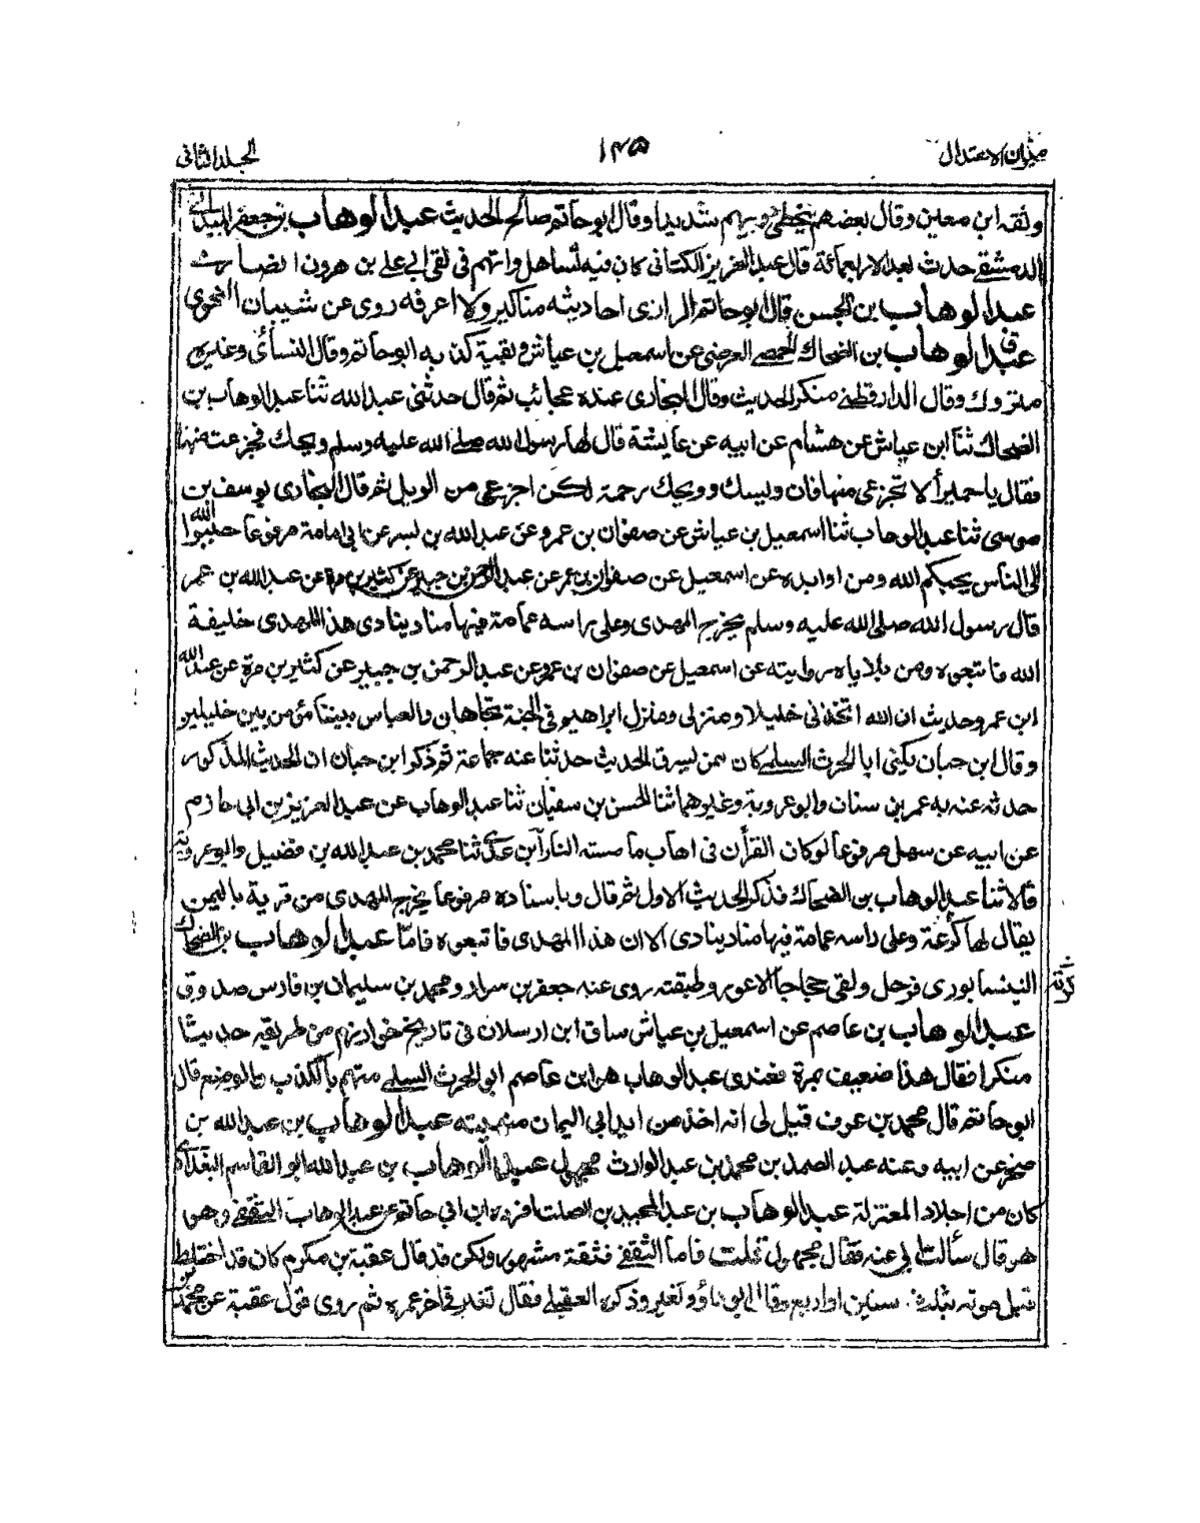 ميزان الاعتدال
١٤٥
المجلد الثانى
وثقه ابن معين وقال بعضهم يخطئ ويهم شديدا وقال ابو حاتم صالح الحديث عبد الوهاب بن جعفر الميدانى
الدمشقى حدث بعد الاربعمائة قال عبد العزيز الكتانى كان فيه تساهل واتهم فى لقى ابى على بن هرون الانصارى
عبد الوهاب بن الحسن قال ابو حاتم الرازى احاديثه مناكير ولا اعرفه روى عن شيبان النحوى
عبد الوهاب بن الضحاك الحمصى العرضى عن اسمعيل بن عياش وبقية كذبه ابو حاتم وقال النسائى وغيره
ق
متروك وقال الدارقطنى منكر الحديث وقال البخارى عنده عجائب ثم قال حدثنى عبد الله ثنا عبد الوهاب بن
الضحاك ثنا ابن عياش عن هشام عن ابيه عن عايشة قال لها رسول الله صلى الله عليه وسلم ويحك فجزعت منها
فقال يا حميرأ لا تجزعى منها فان ويسك وويحك رحمة لكن اجزعى من الويل ثم قال البخارى يوسف بن
موسى ثنا عبد الوهاب ثنا اسمعيل بن عياش عن صفوان بن عمرو عن عبد الله بن بسر عن ابى امامة مرفوعا حببوا الله
الى الناس يحبكم الله ومن اوابده عن اسمعيل عن صفوان بن عمر عن عبد الرحمن بن جبير عن كثير بن مرة عن عبد الله بن عمر
قال رسول الله صلى الله عليه وسلم يخرج المهدى وعلى راسه عمامة فيها مناد ينادى هذا المهدى خليفة
الله فاتبعوه ومن بلاياه روايته عن اسمعيل عن صفوان بن عمرو عن عبد الرحمن بن جبير عن كثير بن مرة عن عبد الله
ابن عمرو حديث ان الله اتخذنى خليلا ومنزلى ومنزل ابراهيم فى الجنة تجاهان والعباس بيننا مؤمن بين خليلين
وقال ابن حبان يكنى ابا الحرث السلمى كان ممن يسرق الحديث حدثنا عنه جماعة ثم ذكر ابن حبان ان الحديث المذكور
حدثه عنه به عمر بن سنان وابو عروبة وغيرهما ثنا الحسن بن سفيان ثنا عبد الوهاب عن عبد العزيز بن ابى حازم
عن ابيه عن سهل مرفوعا لو كان القرأن فى اهاب ما مسته النار ابن عدى ثنا محمد بن عبد الله بن فضيل وابو عروبة
قالا ثنا عبد الوهاب بن الضحاك فذكر الحديث الاول ثم قال وباسناده مرفوعا يخرج المهدى من قرية باليمن
يقال لها كرعة وعلى راسه عمامة فيها مناد ينادى الا ان هذا المهدى فاتبعوه فامّا عبد الوهاب بن الضحاك
النيسابورى فرحل ولقى حجاجا الاعور وطبقته روى عنه جعفر بن سوار ومحمد بن سليمان بن فارس صدوق
عبد الوهاب بن عاصم عن اسمعيل بن عياش ساق ابن ارسلان فى تاريخ خوارزم من طريقه حديثا
منكرا فقال هذا ضعيف بمرة فعندى عبد الوهاب هو ابن عاصم ابو الحرث السلمى متهم بالكذب والوضع قال
ابو حاتم قال محمد بن عوف قيل لى انه اخذ من ابى اليمان عبد الوهاب بن عبد الله بن
صخر عن ابيه وعنه عبد الصمد بن محمد بن عبد الوارث مجهول عبد الوهاب بن عبد الله ابو القاسم البغدادى
كان من اجلاد المعتزلة عبد الوهاب بن عبد المجيد بن الصلت افرده ابن ابى حاتم عن عبد الوهاب الثقفى وهو
هو قال سألت ابى عنه فقال مجهول قلت فاما الثقفى فثقة مشهور ولكن قد قال عقبة بن مكرم كان قد اختلط
قبل موته بثلاث سنين او اربع وقال ابو داؤد تغير وذكره العقيلى فقال تغير فى اخر عمره ثم روى قول عقبة عن محمد بن